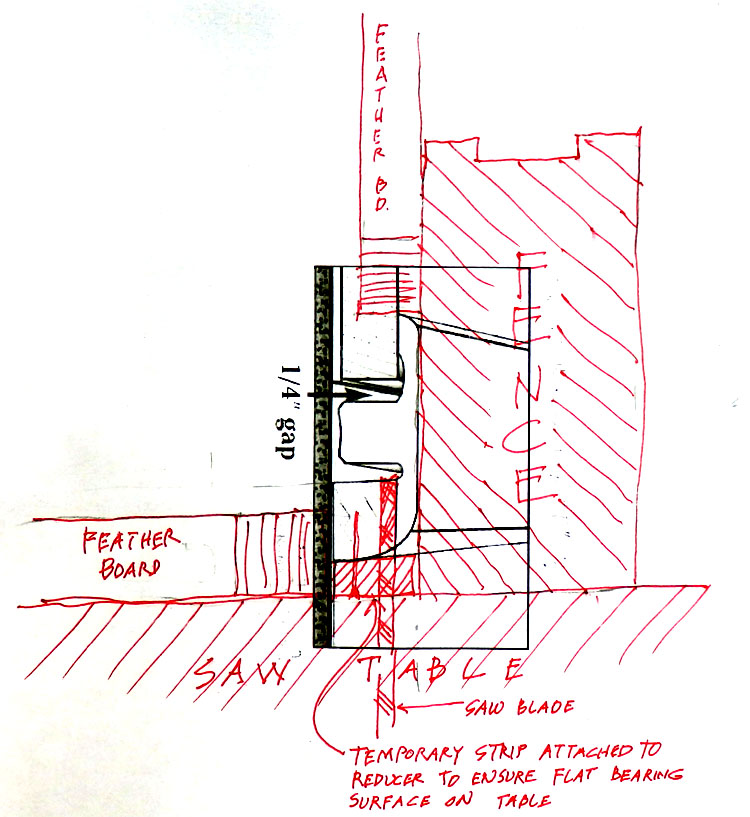 FEATHER BD.
FENCE
1/4" gap
FEATHER
BOARD
SAW TABLE
SAW BLADE
TEMPORARY STRIP ATTACHED TO
REDUCER TO ENSURE FLAT BEARING
SURFACE ON TABLE